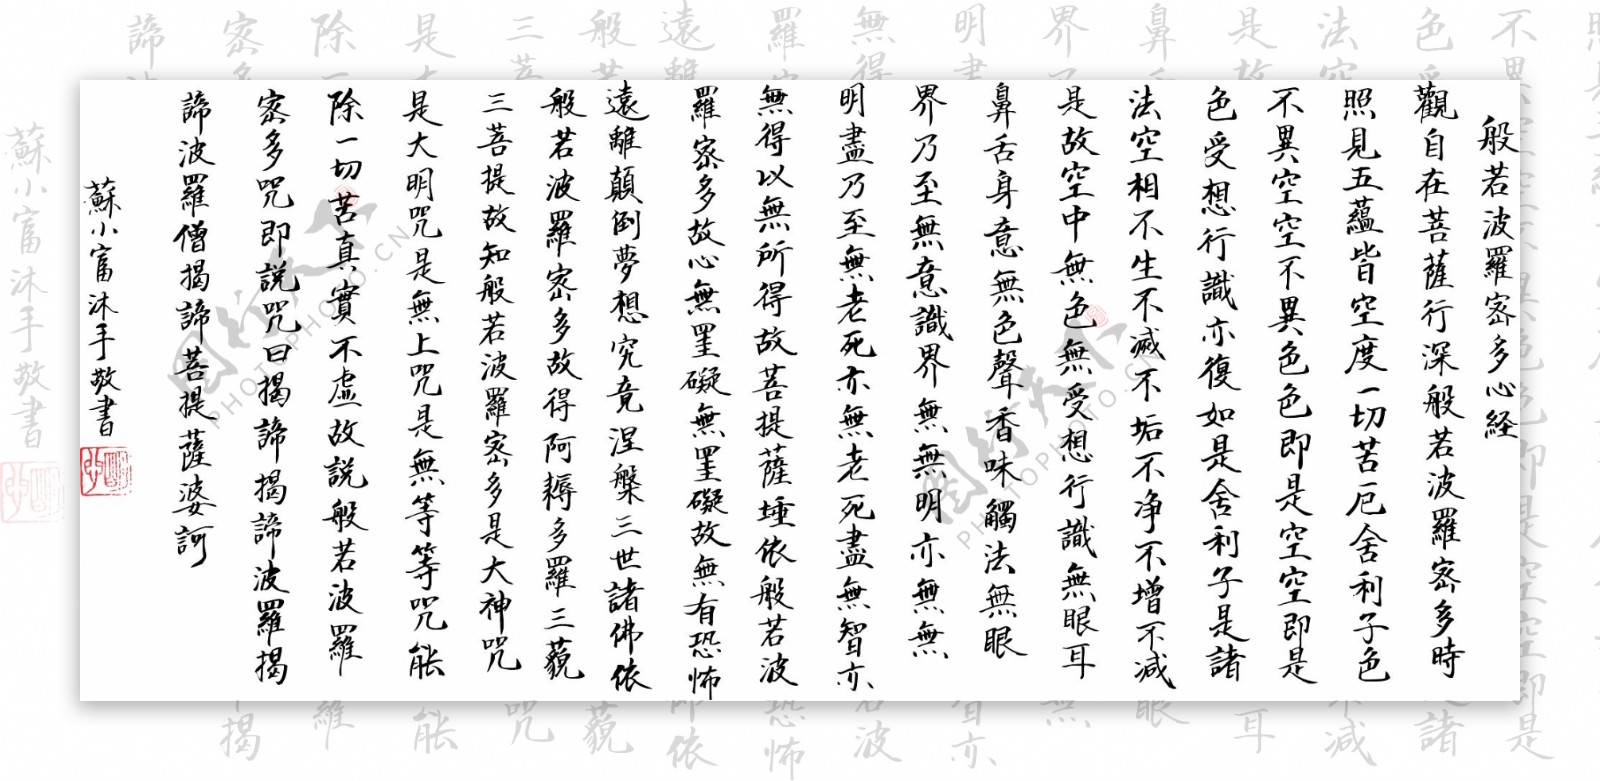 般若波羅密多心経
觀自在菩薩行深般若波羅密多時
照見五蘊皆空度一切苦厄舍利子色
不異空空不異色色即是空空即是
色受想行識亦復如是舍利子是諸
法空相不生不滅不垢不净不增不减
是故空中無色無受想行識無眼耳
鼻舌身意無色聲香味觸法無眼
界乃至無意識界無無明亦無無
明盡乃至無老死亦無老死盡無智亦
無得以無所得故菩提薩埵依般若波
羅密多故心無罣礙無罣礙故無有恐怖
遠離顛倒夢想究竟涅槃三世諸佛依
般若波羅密多故得阿耨多羅三藐
三菩提故知般若波羅密多是大神咒
是大明咒是無上咒是無等等咒能
除一切苦真實不虛故説般若波羅
密多咒即説咒曰揭諦揭諦波羅揭
諦波羅僧揭諦菩提薩婆訶
蘇小富沐手敬書
PHOTOPHOTO.CN
PHOTOPHOTO.CN